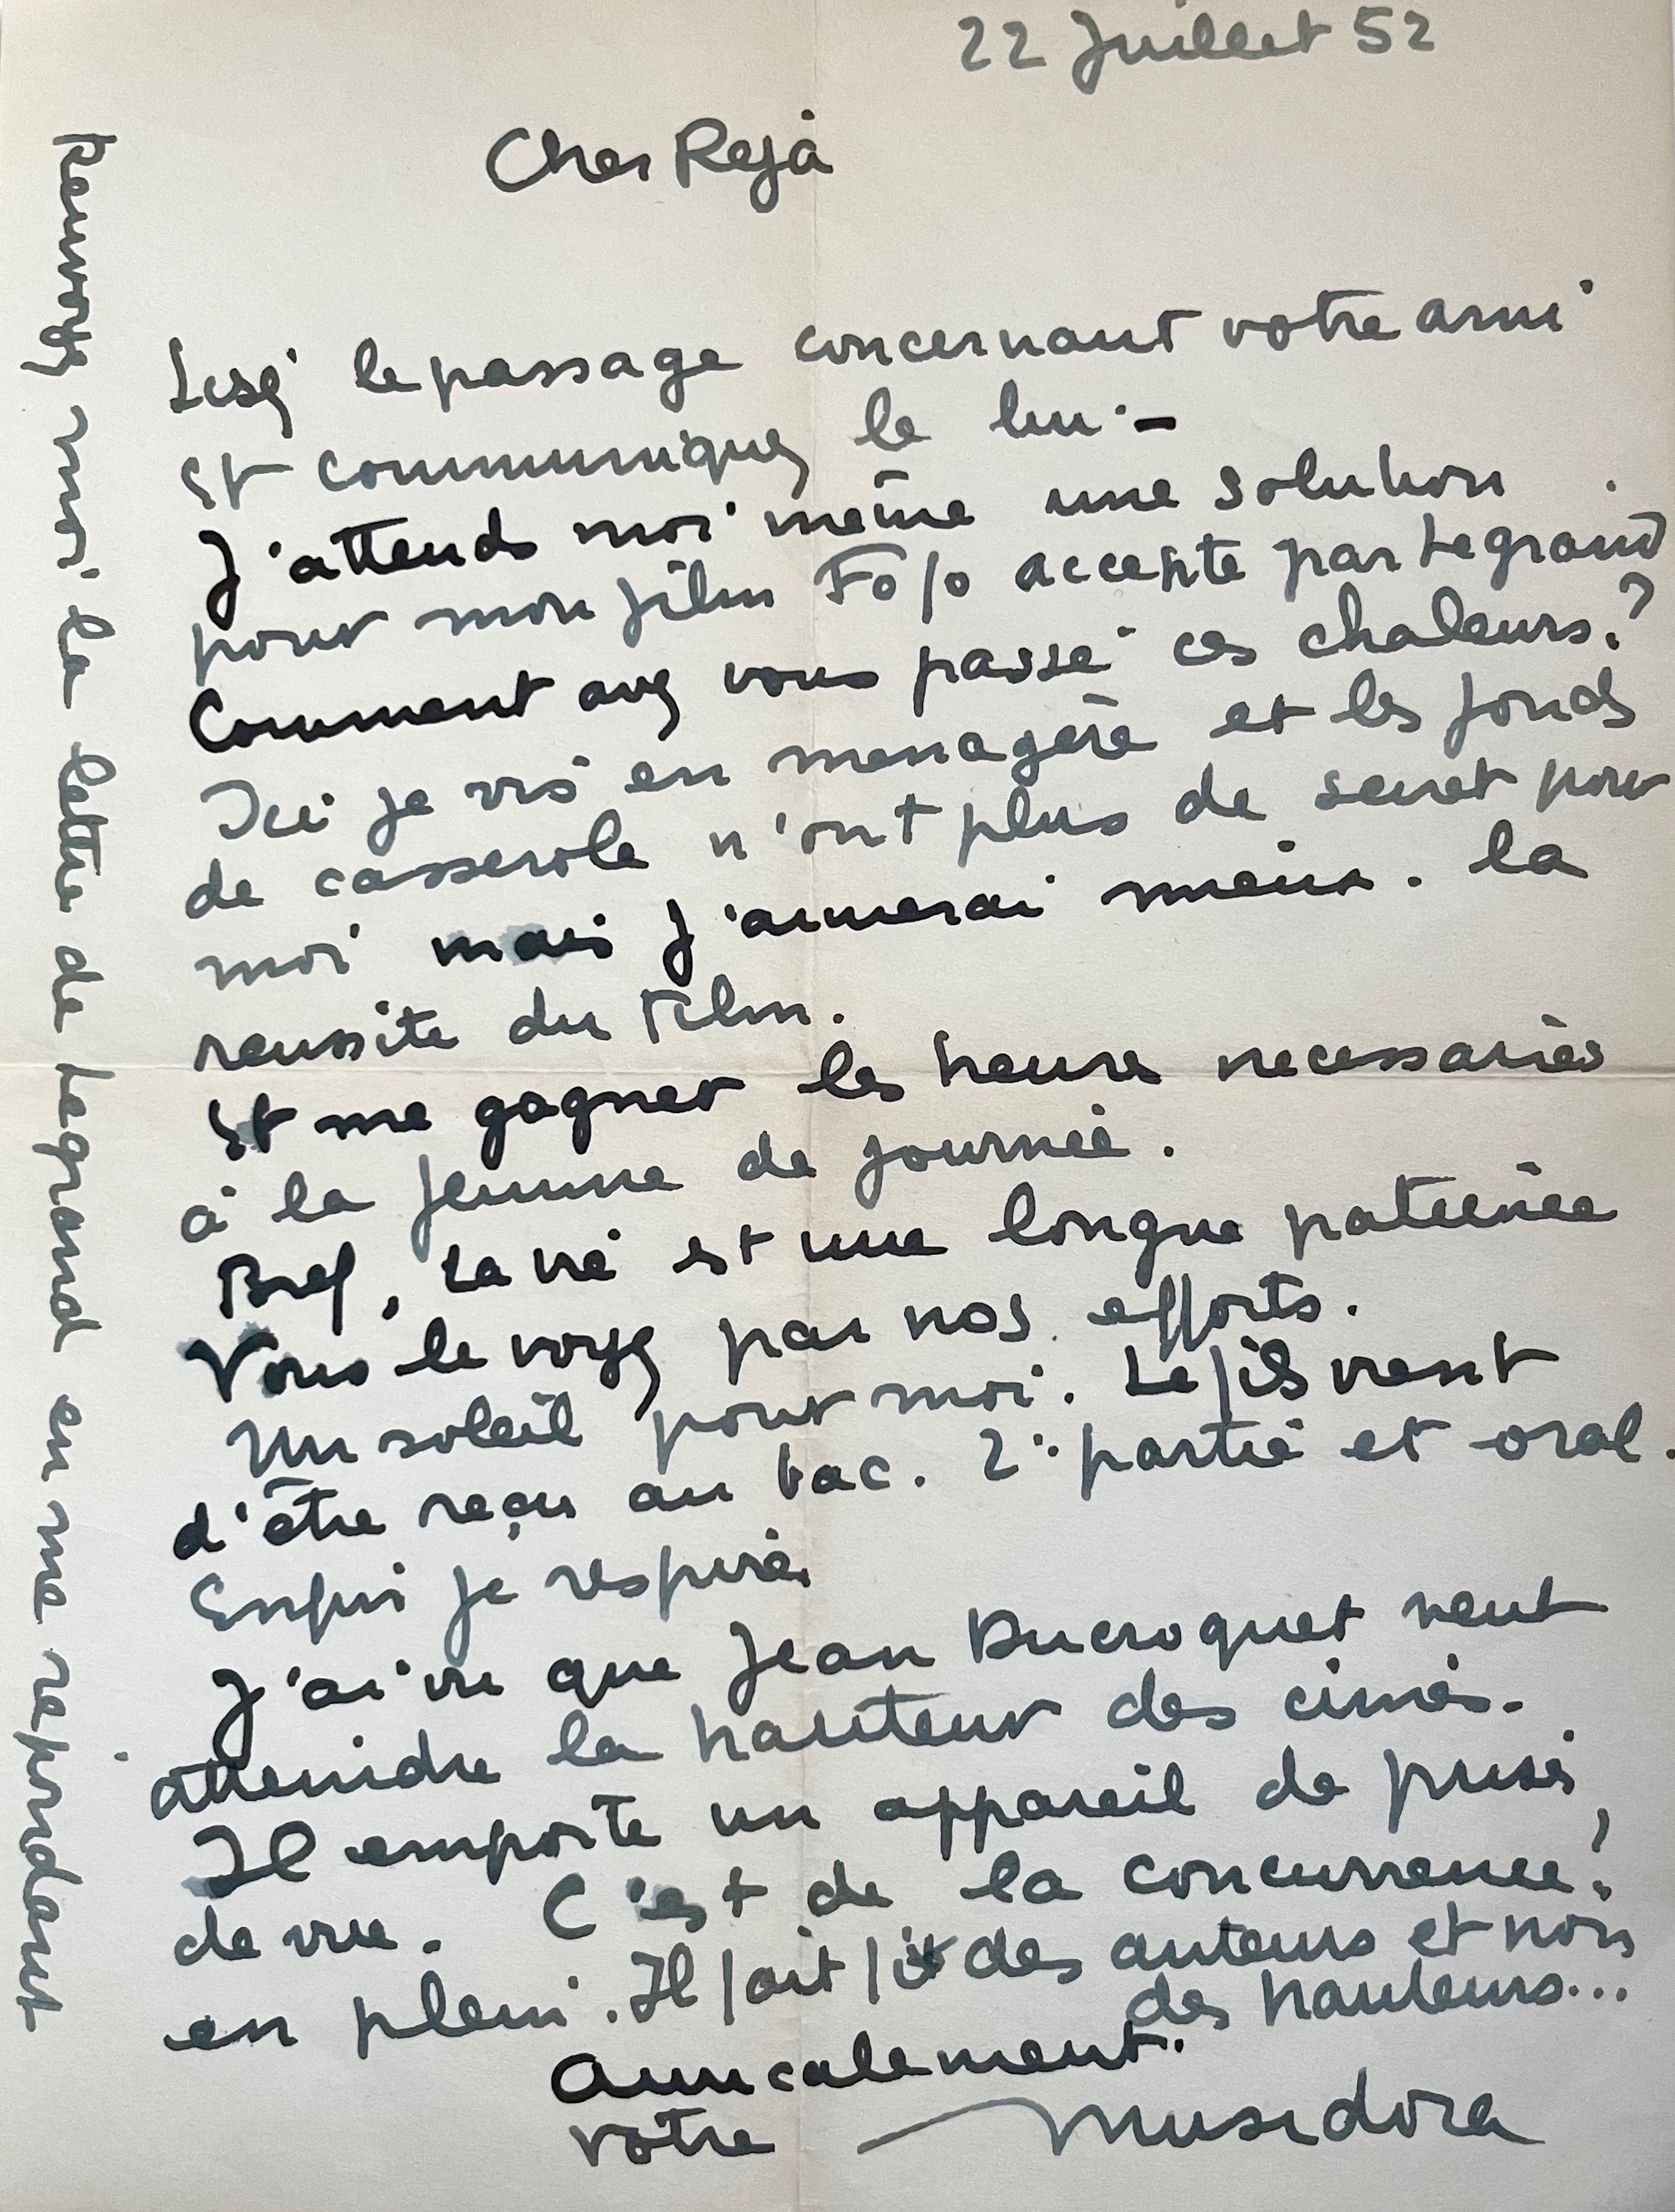 22 Juillet 52
Cher Rejà
Lisez le passage concernant votre ami
et communiquez le lui -
J'attends moi même une solution
pour mon film Fofo accepte par Legrand
Comment avez vous passé ces chaleurs ?
Ici je vis en menagère et les fonds
de casserole n'ont plus de secret pour
moi mais j'aimerai mieux . la
reussite du Film.
Et me gagner les heures necessaires
à la femme de journée .
Bref, La vie est une longue patience
Vous le voyez par nos efforts .
Un soleil pour moi . Le fils vient
d'être reçu au bac . 2° partie et oral .
Enfin je respire.
J'ai vu que Jean Ducroquet veut
atteindre la hauteur des cimes.
Il emporte un appareil de prise
de vue . C'est de la concurrence !
en plein . Il fait des auteurs et non
des hauteurs...
Amicalement .
votre Musidora
Renvoyez moi la lettre de Legrand en me repondant